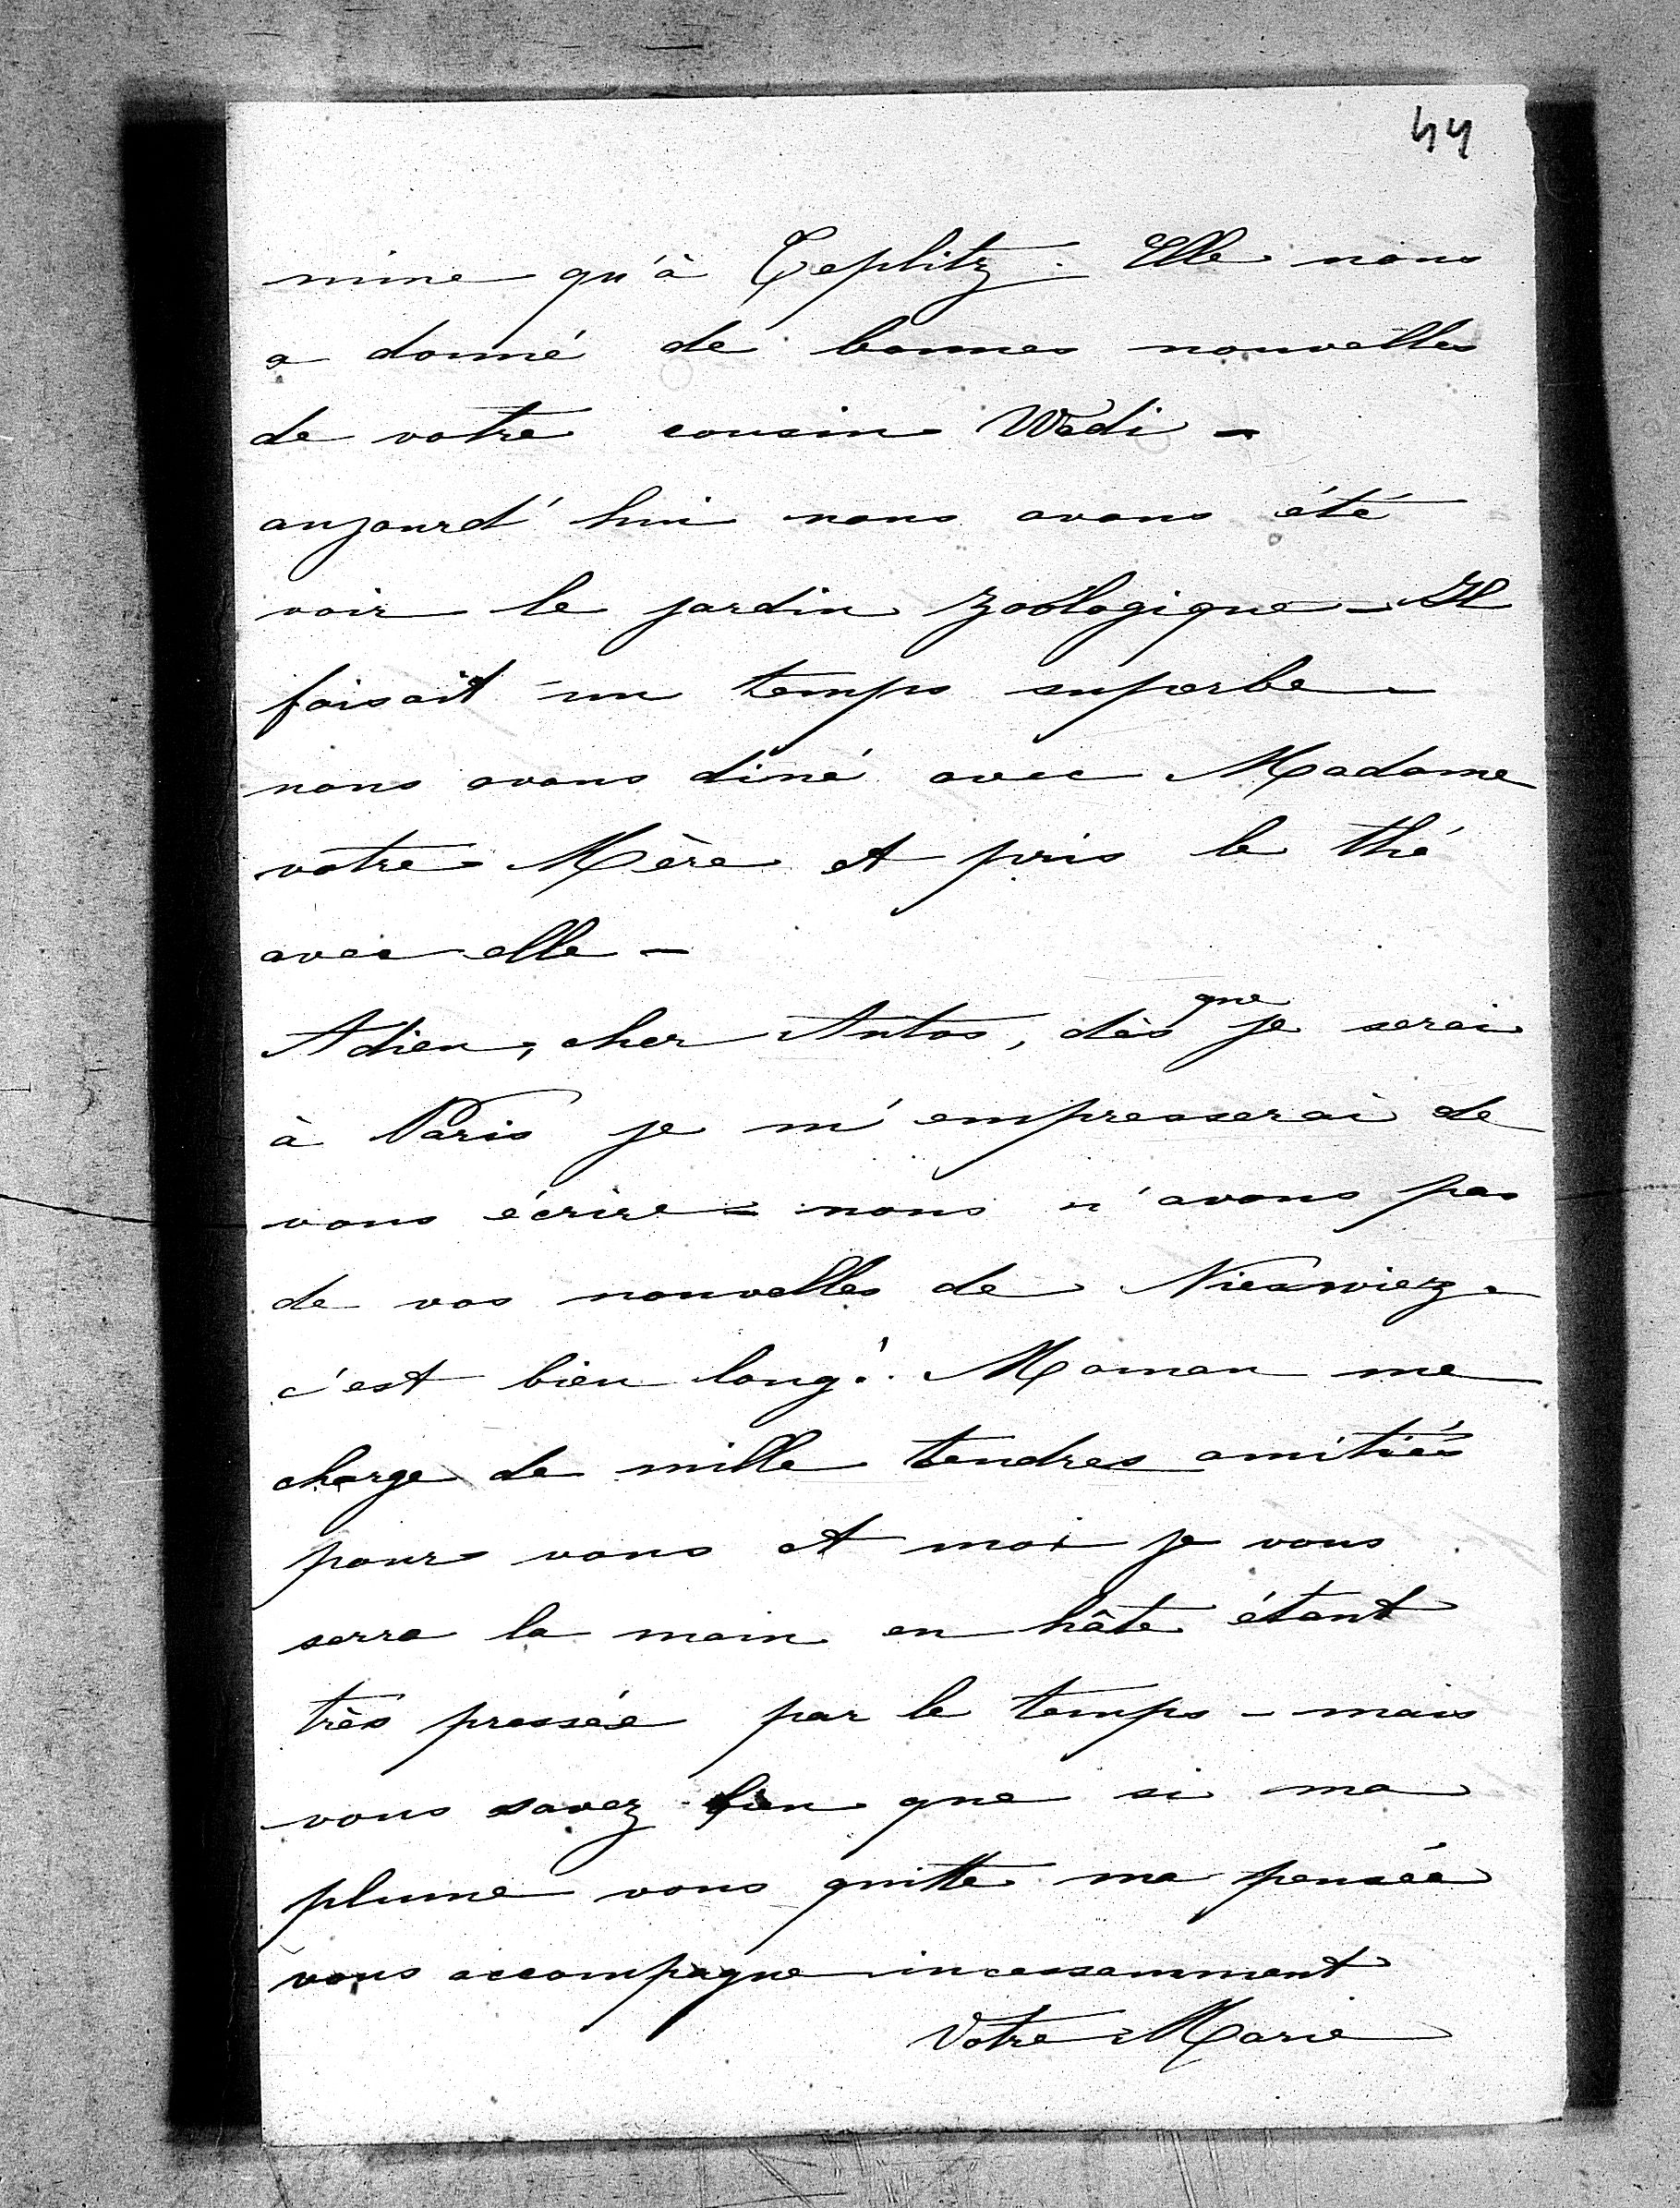 44
mine qu'à Teplitz. Elle nous
a donné de bonnes nouvelles
de votre cousin Wadi -
aujourd'hui nous avons été
voir le jardin zoologique - Il
faisait un temps superbe -
nous avons diné avec Madame
votre Mère et pris le thé
avec elle -
Adieu, cher Antos, dès que je serai
à Paris je m'empresserai de
vous écrire - nous n'avons pas
de vos nouvelles de Nieswiez -
c'est bien long! Maman me
charge de mille tendres amitiés
pour vous et moi je vous
serre la main en hâte étant
très pressée par le temps - mais
vous savez bien que si ma
plume vous quitte ma pensée
vous accompagne incessamment
Votre Marie